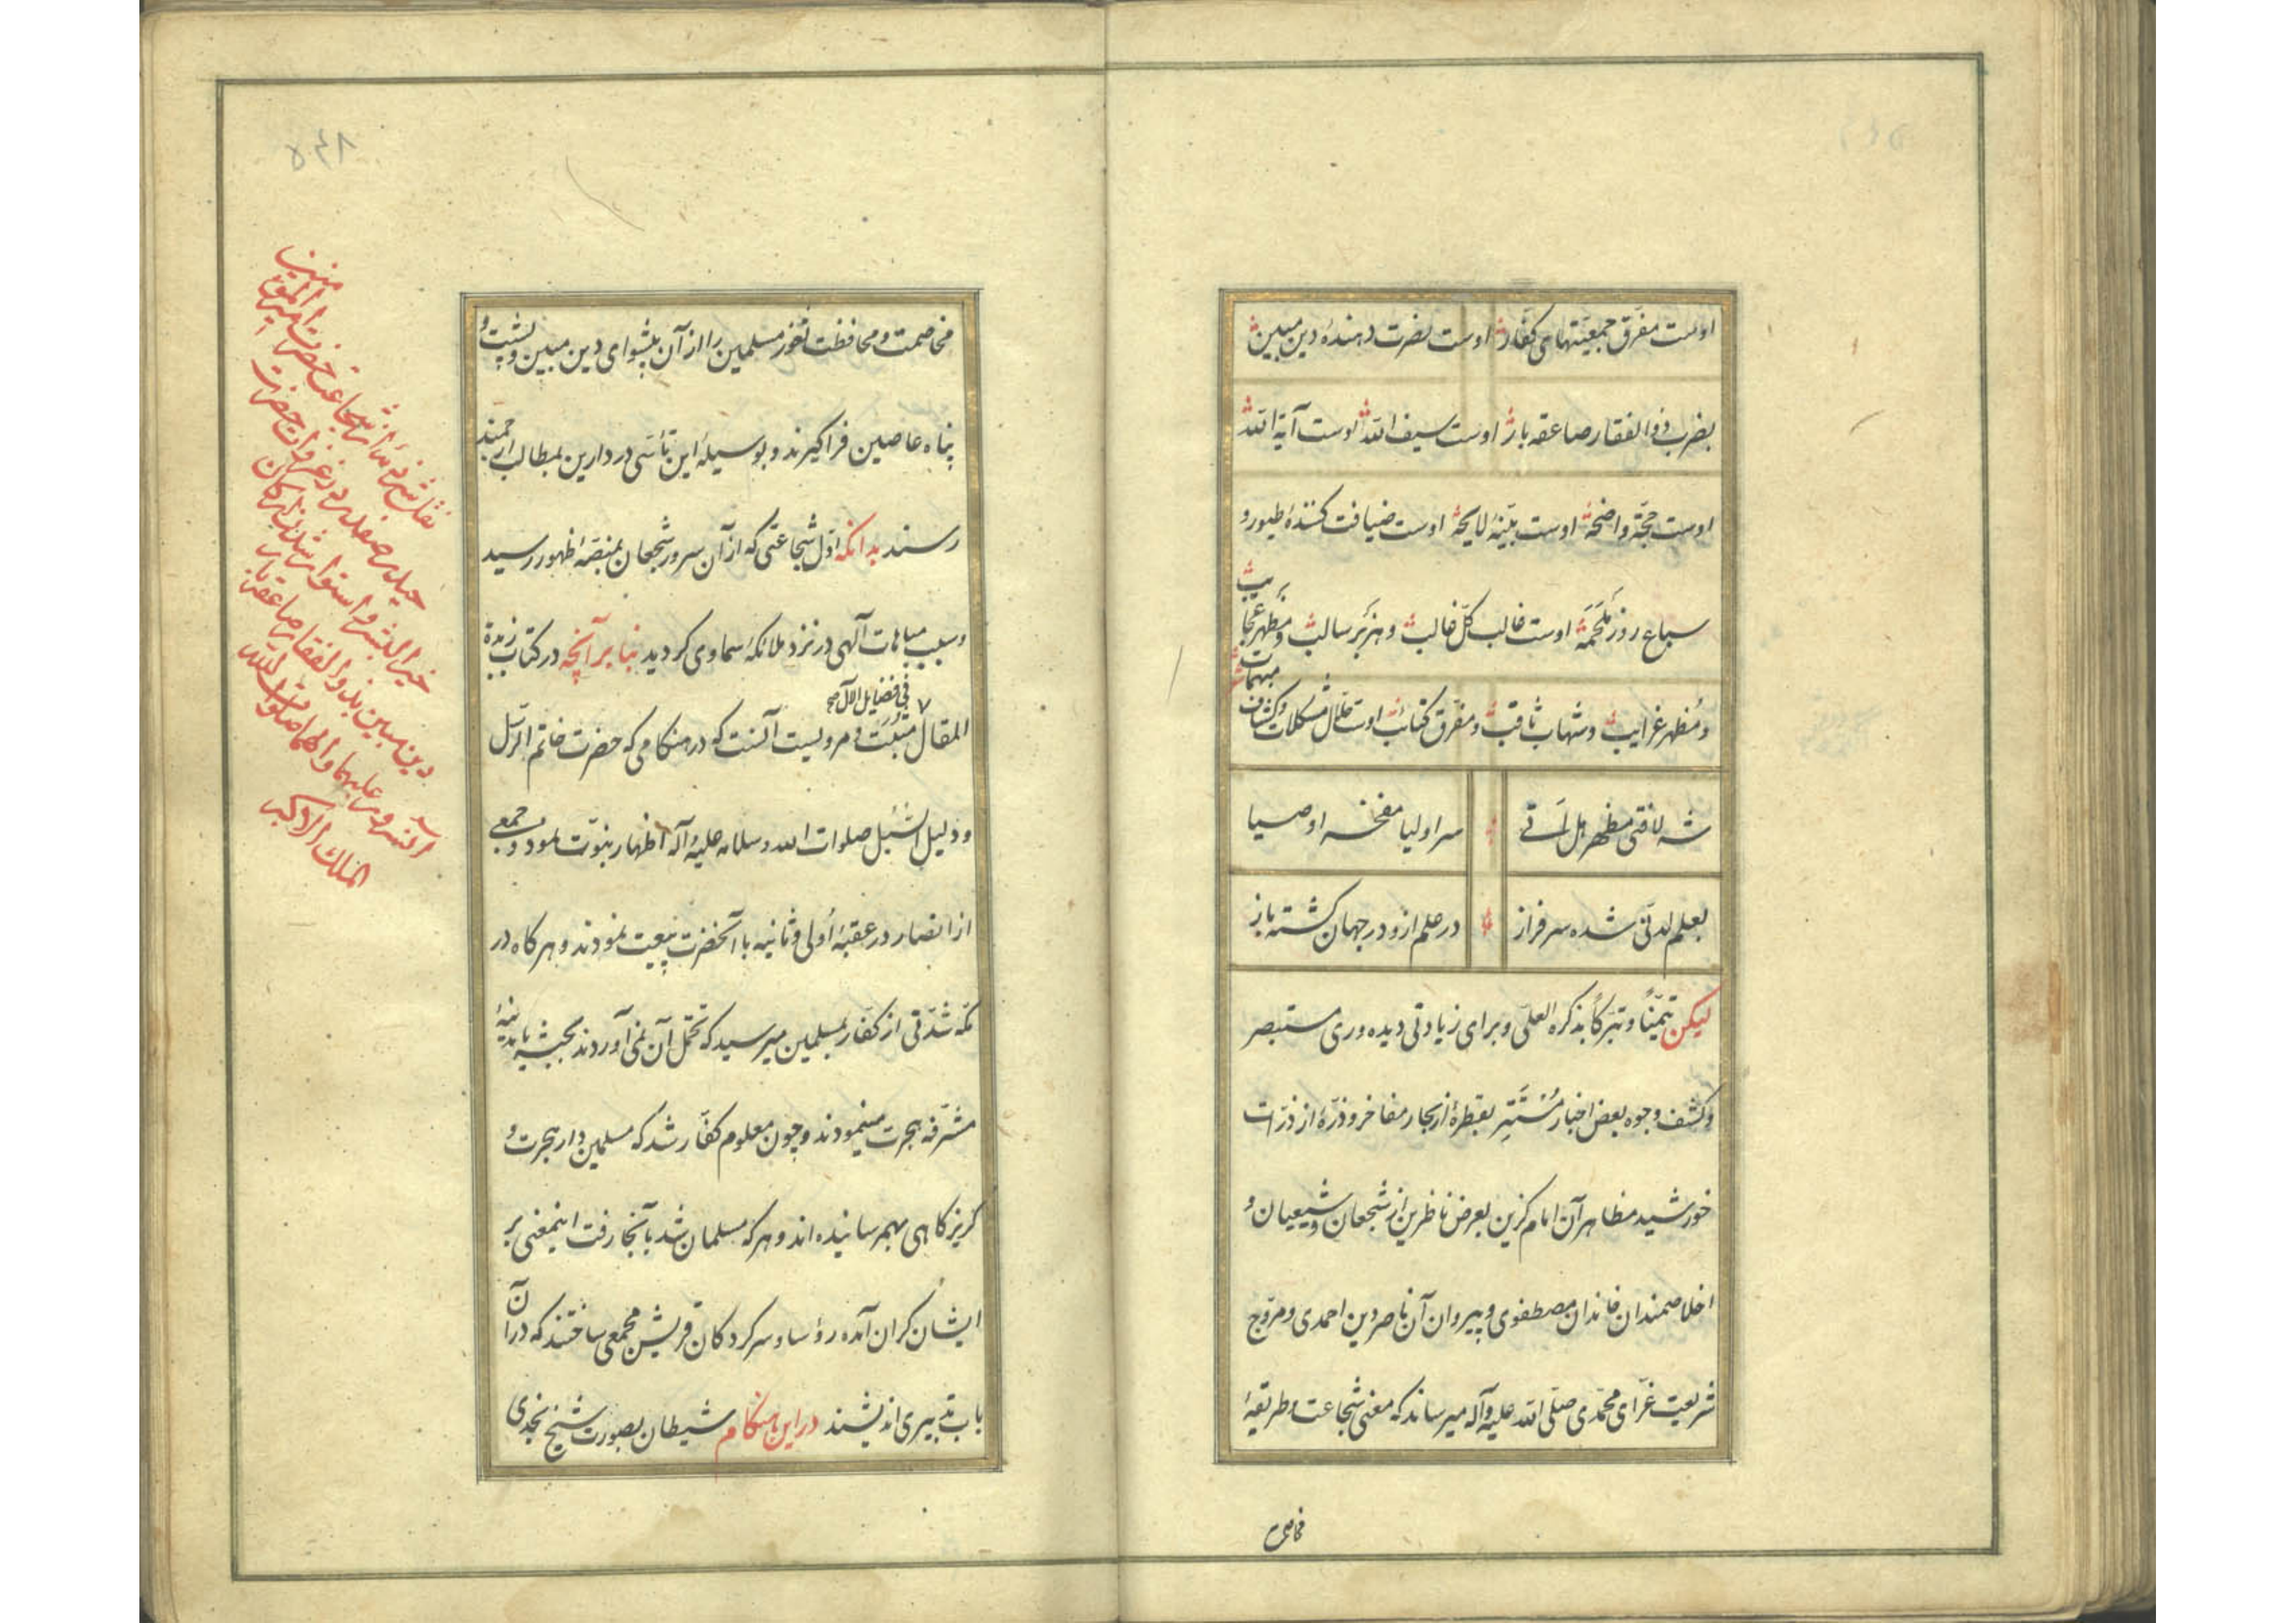 اوست مفرّق جمعیّتهای کفّار اوست نصرت دهندهٔ دین مبین
بضرب ذوالفقار صاعقه بار اوست سیف الله اوست آیة الله
اوست حجّة واضحة اوست بیّنهٔ لایحهٔ اوست ضیافت کنندهٔ طیور و
سباع روز مَلحَمَه اوست غالب کلّ غالب و هزبر سالب و مظهر عجایب
و مُظهر غرایب و شهاب ثاقب و مفرّق کتائب اوست حلّال مشکلات و کشاف مبهمات
شه لافتی مظهر هل اَتی سر اولیا مفخر اوصیا
بعلم لدنّی شده سرفراز در علم ازو در جهان کشته باز
لیکن تیمّناً و تبرّکاً بذکره العلیّ و برای زیادتی دیده وری مستبصر
و کشف وجوه بعض اخبار مُستَتِر بقطرهٔ از بحار مفاخر و ذرّهٔ از ذرّات
خورشید مظاهر آن امام گزین بعرض ناظرین از شجعان و شیعیان و
اخلاصمندان خاندان مصطفوی و پیروان آن ناصر دین احمدی و مروّج
شریعت غرّای محمّدی صلّی الله علیه وآله میرساند که معنی شجاعت و طریقهٔ
مخاصمت
۵۴۸
مخاصمت و محافظت ثغور مسلمین را از آن پیشوای دین مبین و پشت و
پناه عاصین فرا کیرند و بوسیلهٔ این تأسّی در دارین بمطالب ارجمند
رسند بدانکه اوّل شجاعتی که از آن سرور شجعان بمنصّهٔ ظهور رسید
و سبب مباهات آلهی در نزد ملائکهٔ سماوی کردید بنا بر آنچه در کتاب زبدة
فی فضایل الآل صح
المقال مثبت و مرویست آنست که در هنکامی که حضرت خاتم الرّسل
و دلیل السّبل صلوات الله و سلامه علیه و آله اظهار نبوّت نمود و جمعی
از انصار در عقبهٔ اُولی و ثانیه با آنحضرت بیعت نمودند و هرکاه در
مکّه شدّتی از کفّار بمسلمین میرسید که تحمّل آن نمی آوردند بحبشه یا بمدینهٔ
مشرّفه هجرت مینمودند و چون معلوم کفّار شد که مسلمین دار هجرت و
کریزکاهی بهمرسانیده اند و هرکه مسلمان شد بآنجا رفت اینمعنی بر
ایشان کران آمده رؤسا و سرکردکان قریش مجمعی ساختند که در آن
باب تدبیری اندیشند در این هنکام شیطان بصورت شیخ نجدی
شجاعت حضرت امیرالمؤمنین
حیدر صفدر در غزوات حضرت
خیر البشر و استوار شدن ارکان
دین مبین بذوالفقار صاعقه بار
آن سرور علیهما و آلهما صلوات الله
الملک الاکبر